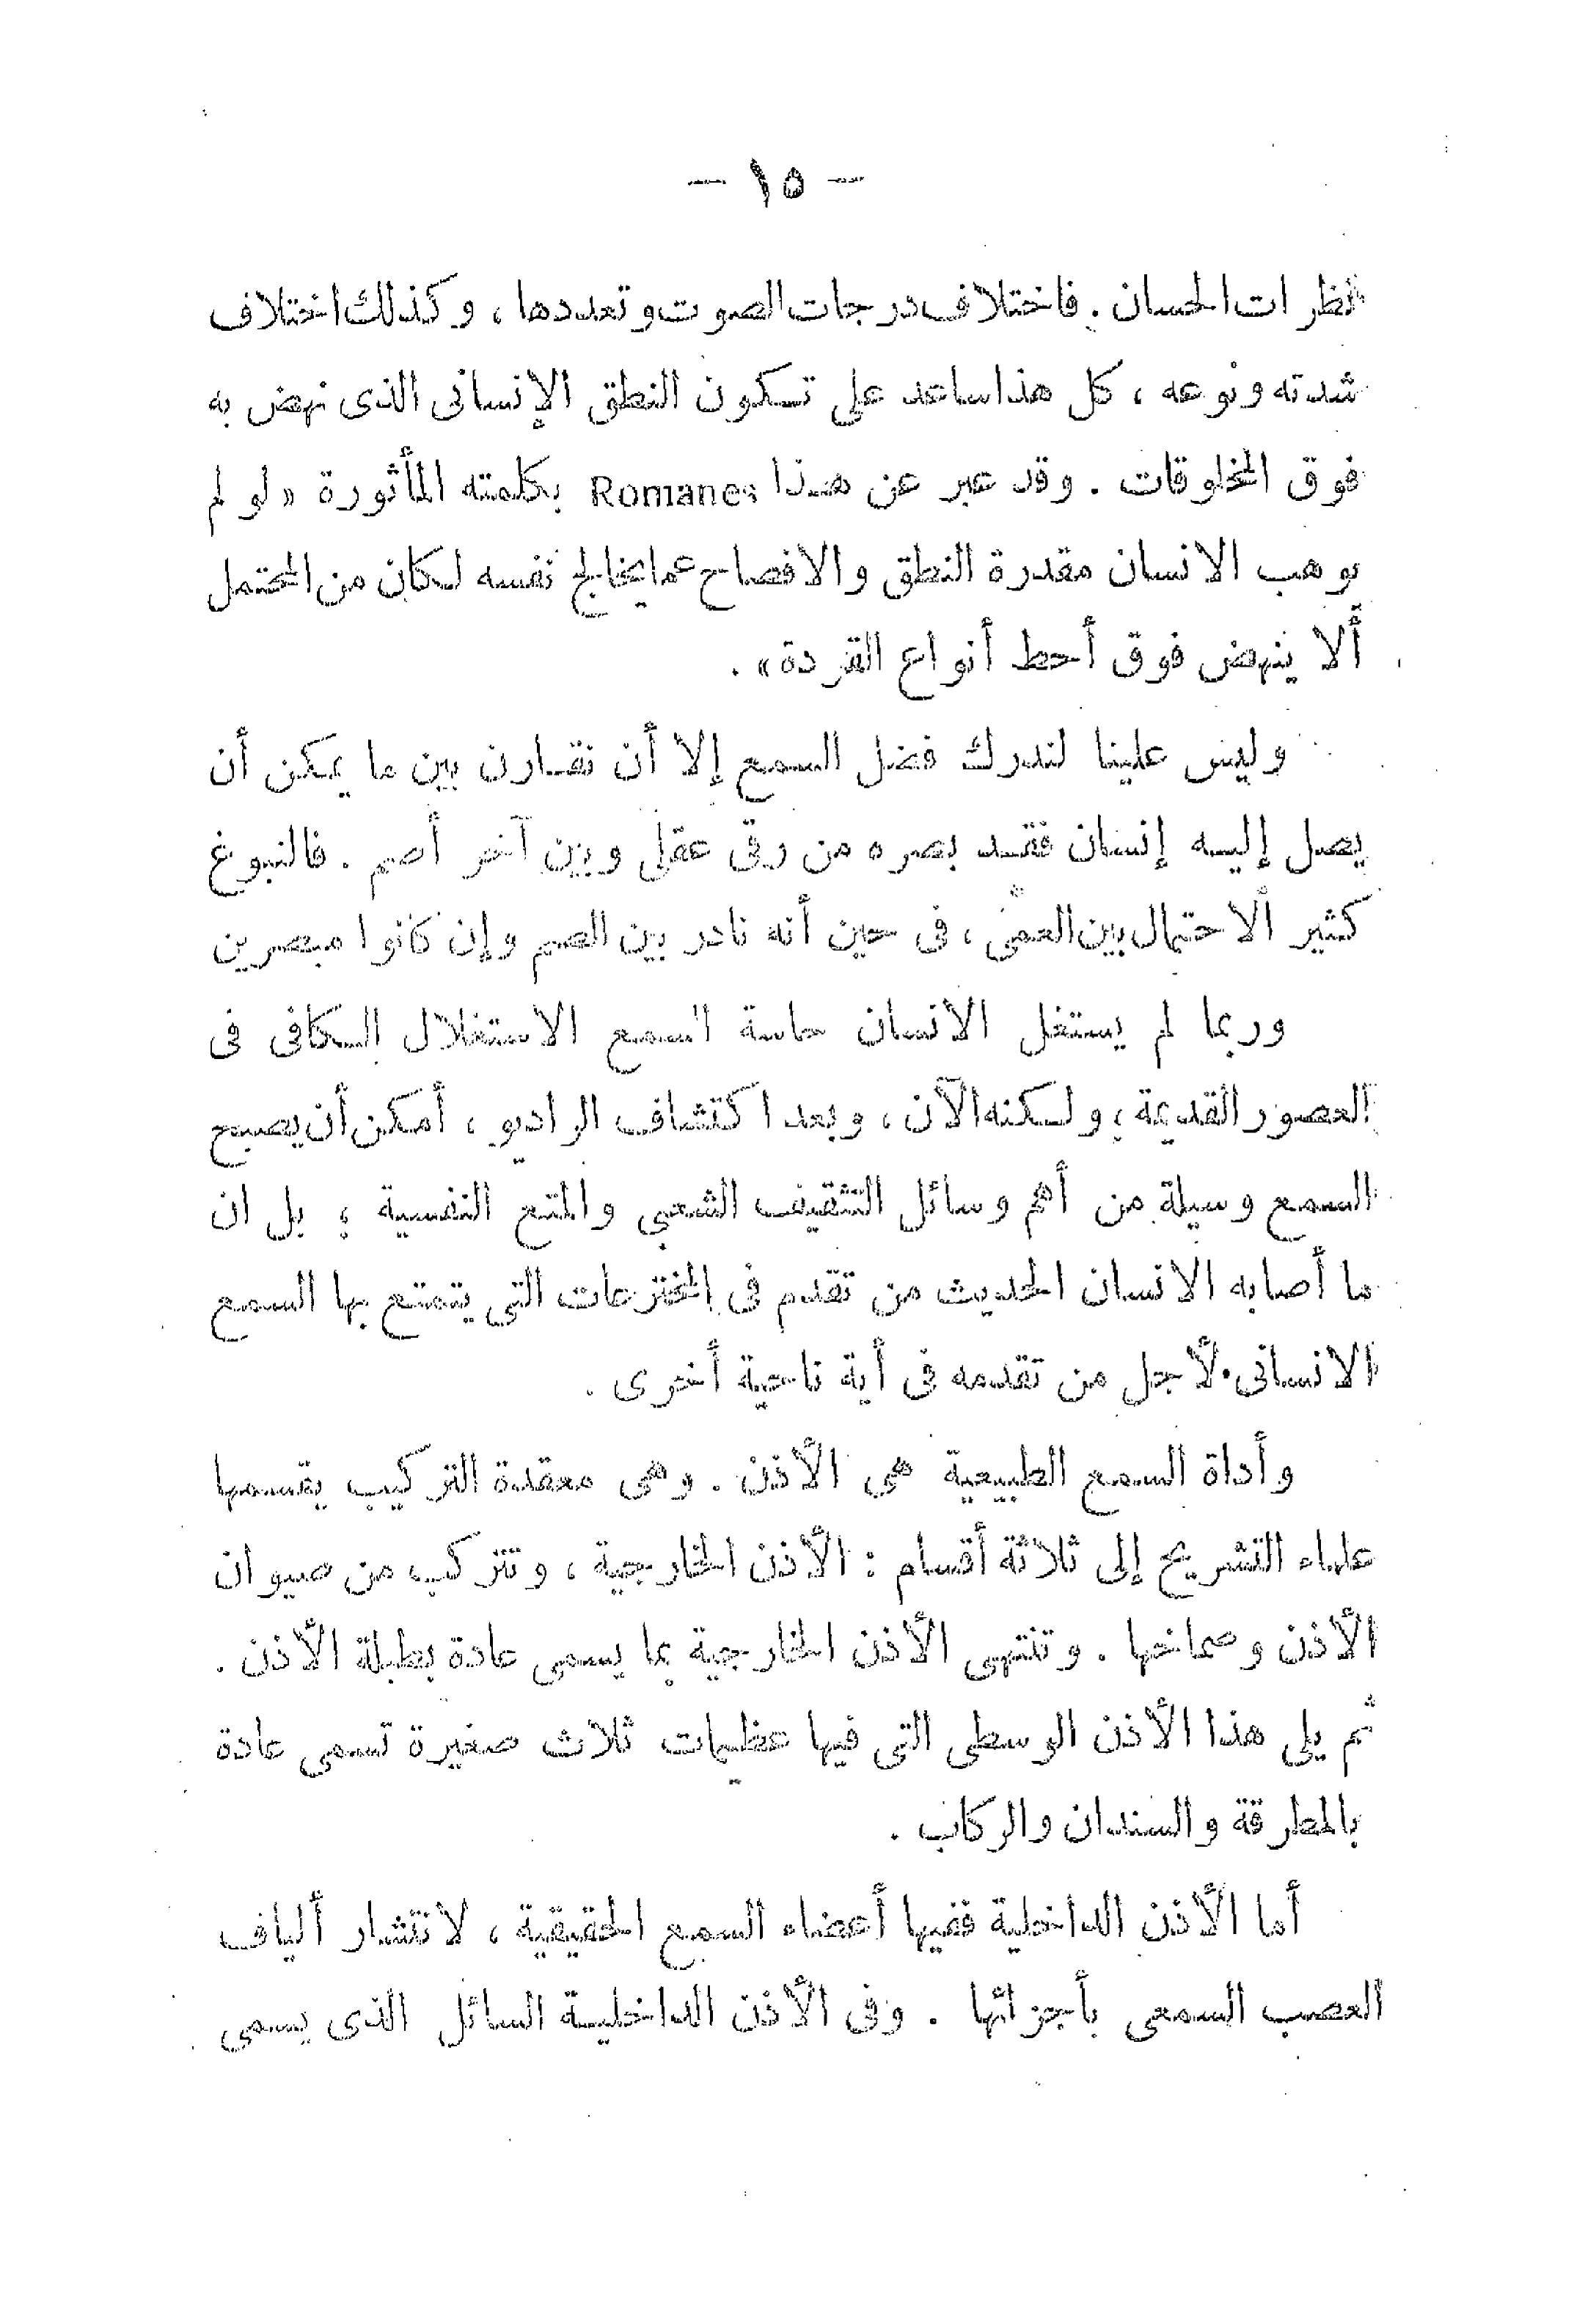 - ١٥ -
نظرات الحسان . فاختلاف درجات الصوت وتعددها ، وكذلك اختلاف
شدته ونوعه ، كل هذا ساعد على تكون النطق الإنسانى الذى نهض به
فوق المخلوقات . وقد عبر عن هذا Romanes بكلمته المأثورة « لو لم
يوهب الانسان مقدرة النطق والافصاح عما يخالج نفسه لكان من المحتمل
ألا ينهض فوق أحط أنواع القردة » .
وليس علينا لندرك فضل السمع إلا أن نقارن بين ما يمكن أن
يصل إليه إنسان فقد بصره من رقى عقلى وبين آخر أصم . فالنبوغ
كثير الاحتمال بين العمى ، فى حين أنه نادر بين الصم وإن كانوا مبصرين
وربما لم يستغل الانسان حاسة السمع الاستغلال الكافى فى
العصور القديمة ؛ ولكنه الآن ، وبعد اكتشاف الراديو ، أمكن أن يصبح
السمع وسيلة من أهم وسائل التثقيف الشعبى والمتع النفسية ؛ بل ان
ما أصابه الانسان الحديث من تقدم فى المخترعات التى يتمتع بها السمع
الانسانى لأجل من تقدمه فى أية ناحية أخرى .
وأداة السمع الطبيعية هى الأذن . وهى معقدة التركيب يقسمها
علماء التشريح إلى ثلاثة أقسام : الأذن الخارجية ، وتتركب من صيوان
الأذن وصماخها . وتنتهى الأذن الخارجية بما يسمى عادة بطبلة الأذن .
ثم يلى هذا الأذن الوسطى التى فيها عظيمات ثلاث صغيرة تسمى عادة
بالمطرقة والسندان والركاب .
أما الأذن الداخلية ففيها أعضاء السمع الحقيقية ، لانتشار ألياف
العصب السمعى بأجزائها . وفى الأذن الداخلية السائل الذى يسمى